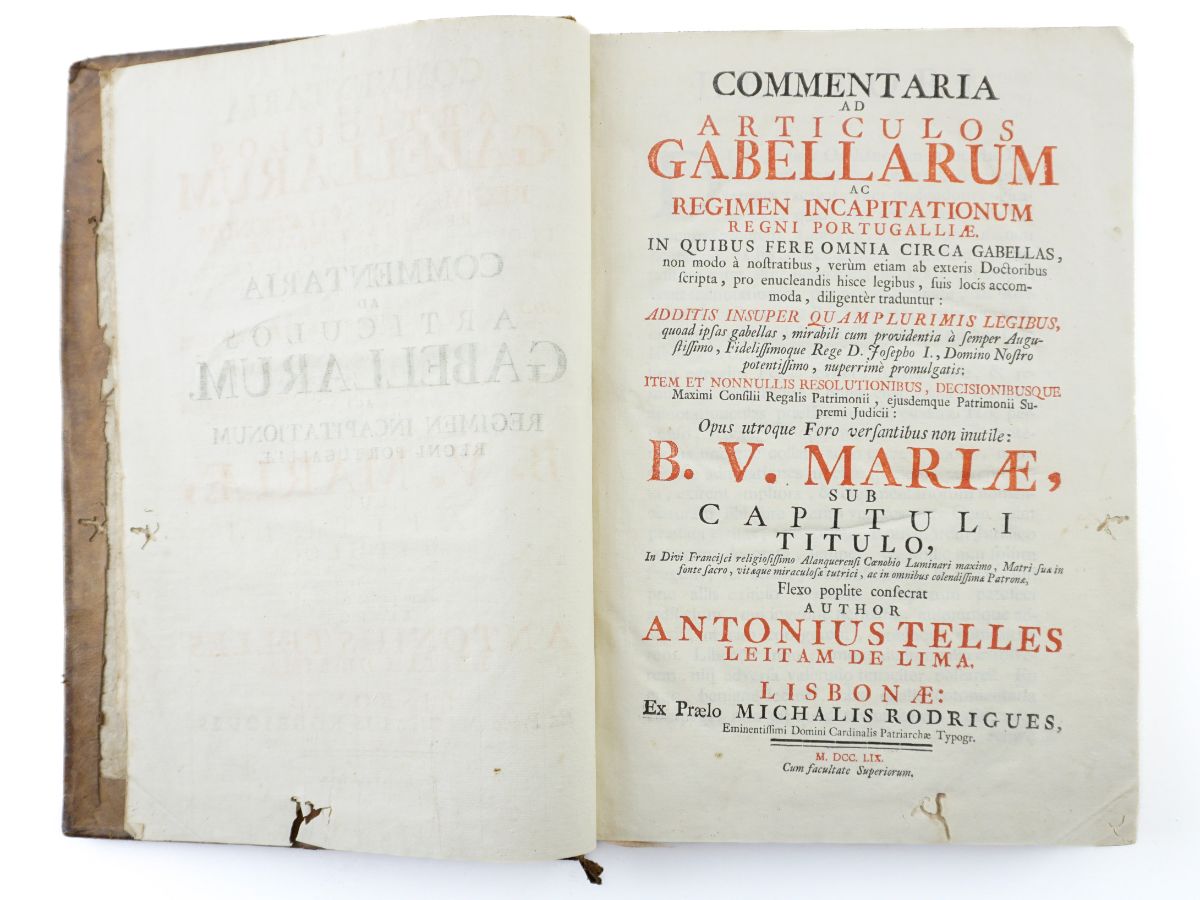 COMMENTARIA
AD
ARTICULOS
GABELLARUM
AC
REGIMEN INCAPITATIONUM
REGNI PORTUGALLIÆ,
IN QUIBUS FERE OMNIA CIRCA GABELLAS,
non modo à noſtratibus, verùm etiam ab exteris Doctoribus
ſcripta, pro enucleandis hisce legibus, ſuis locis accom-
moda, diligentèr traduntur:
ADDITIS INSUPER QUAMPLURIMIS LEGIBUS,
quoad ipſas gabellas, mirabili cum providentia à ſemper Augu-
ſtiſſimo, Fideliſſimoque Rege D. Joſepho I., Domino Noſtro
potentiſſimo, nuperrimè promulgatis;
ITEM ET NONNULLIS RESOLUTIONIBUS, DECISIONIBUSQUE
Maximi Conſilii Regalis Patrimonii, ejusdemque Patrimonii Su-
premi Judicii:
Opus utroque Foro verſantibus non inutile:
B. V. MARIÆ,
SUB
CAPITULI
TITULO,
In Divi Franciſci religioſiſſimo Alanquerenſi Cœnobio Luminari maximo, Matri ſuæ in
fonte ſacro, vitæque miraculoſæ tutrici, ac in omnibus colendiſſimæ Patronæ,
Flexo poplite conſecrat
AUTHOR
ANTONIUS TELLES
LEITAM DE LIMA.
LISBONÆ:
Ex Prælo MICHALIS RODRIGUES,
Eminentiſſimi Domini Cardinalis Patriarchæ Typogr.
M. DCC. LIX.
Cum facultate Superiorum.